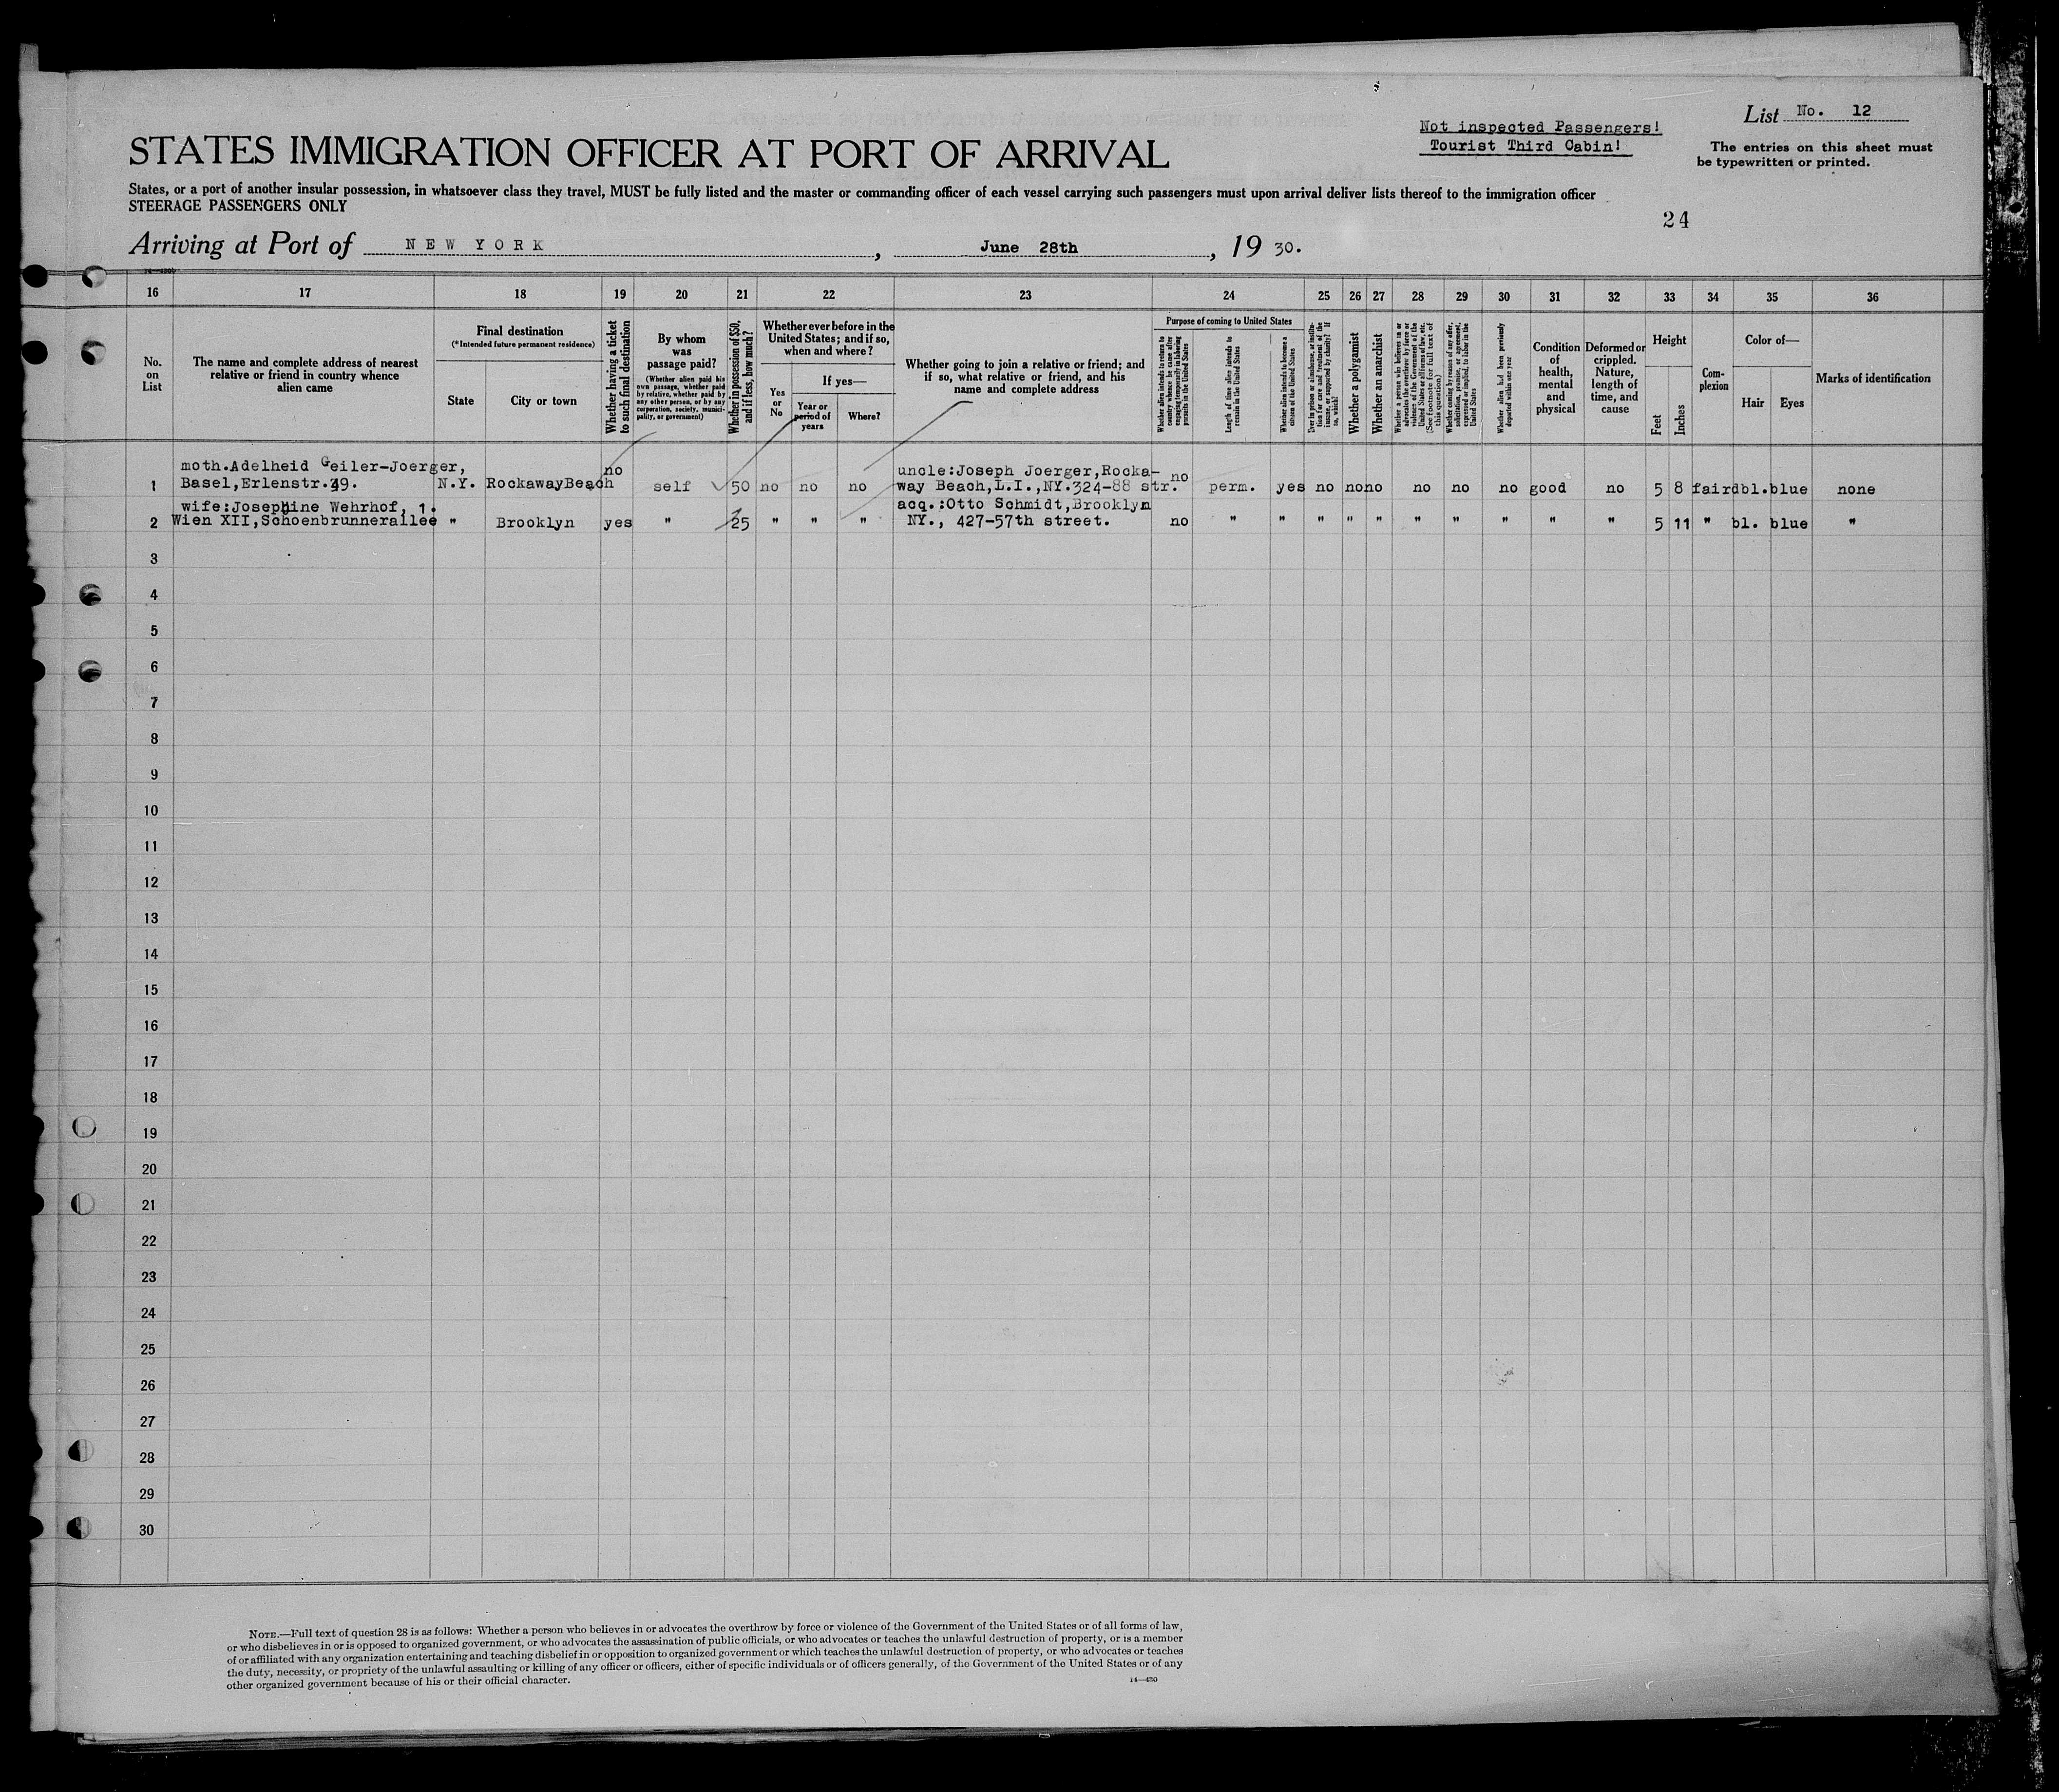 List No. 12
Not inspected Passengers!
Tourist Third Cabin!
The entries on this sheet must
be typewritten or printed.
STATES IMMIGRATION OFFICER AT PORT OF ARRIVAL
States, or a port of another insular possession, in whatsoever class they travel, MUST be fully listed and the master or commanding officer of each vessel carrying such passengers must upon arrival deliver lists thereof to the immigration officer
STEERAGE PASSENGERS ONLY
24
Arriving at Port of NEW YORK, June 28th, 19 30.
16 17 18 19 20 21 22 23 24 25 26 27 28 29 30 31 32 33 34 35 36
No. on List
The name and complete address of nearest
relative or friend in country whence
alien came
Final destination
(*Intended future permanent residence)
State
City or town
Whether having a ticket
to such final destination
By whom
was
passage paid?
(Whether alien paid his
own passage, whether paid
by relative, whether paid by
any other person, or by any
corporation, society, munici-
pality, or government)
Whether in possession of $50,
and if less, how much?
Whether ever before in the
United States; and if so,
when and where?
Yes
or
No
If yes—
Year or
period of
years
Where?
Whether going to join a relative or friend; and
if so, what relative or friend, and his
name and complete address
Purpose of coming to United States
Whether alien intends to return to
country whence he came after
engaging temporarily in laboring
pursuits in the United States
Length of time alien intends to
remain in the United States
Whether alien intends to become a
citizen of the United States
Ever in prison or almshouse, or institu-
tion for care and treatment of the
insane, or supported by charity? If
so, which?
Whether a polygamist
Whether an anarchist
Whether a person who believes in or
advocates the overthrow by force or
violence of the Government of the
United States or all forms of law, etc.
(See footnote for full text of
this question)
Whether coming by reason of any offer,
solicitation, promise, or agreement,
expressed or implied, to labor in the
United States
Whether alien had been previously
deported within one year
Condition
of
health,
mental
and
physical
Deformed or
crippled.
Nature,
length of
time, and
cause
Height
Feet
Inches
Com-
plexion
Color of—
Hair
Eyes
Marks of identification
moth.Adelheid Geiler-Joerger, no uncle:Joseph Joerger,Rocka- no
1 Basel,Erlenstr.39. N.Y. RockawayBeach self 50 no no no way Beach,L.I.,NY.324-88 str. perm. yes no no no no no no good no 5 8 fair dbl. blue none
wife:Josephine Wehrhof, 1. acq.:Otto Schmidt,Brooklyn
2 Wien XII,Schoenbrunnerallee " Brooklyn yes " 25 " " " NY., 427-57th street. no " " " " " " " " " " 5 11 " bl. blue "
3
4
5
6
7
8
9
10
11
12
13
14
15
16
17
18
19
20
21
22
23
24
25
26
27
28
29
30
NOTE.—Full text of question 28 is as follows: Whether a person who believes in or advocates the overthrow by force or violence of the Government of the United States or of all forms of law,
or who disbelieves in or is opposed to organized government, or who advocates the assassination of public officials, or who advocates or teaches the unlawful destruction of property, or is a member
of or affiliated with any organization entertaining and teaching disbelief in or opposition to organized government or which teaches the unlawful destruction of property, or who advocates or teaches
the duty, necessity, or propriety of the unlawful assaulting or killing of any officer or officers, either of specific individuals or of officers generally, of the Government of the United States or of any
other organized government because of his or their official character.
14—430